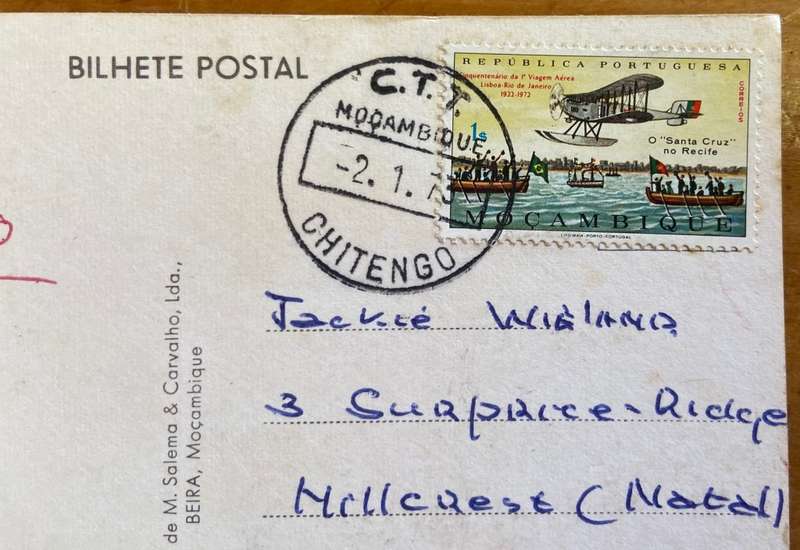 BILHETE POSTAL
C.T.T.
MOÇAMBIQUE
-2.1.7
CHITENGO
REPÚBLICA PORTUGUESA
Cinquentenário da 1ª Viagem Aérea
Lisboa-Rio de Janeiro
1922-1972
CORREIOS
1$
O "Santa Cruz"
no Recife
MOÇAMBIQUE
LITO MAIA-PORTO-PORTUGAL
Jackie
3 Surprice-Ridge
Hillcrest (Natal)
de M. Salema & Carvalho, Lda.,
BEIRA, Moçambique